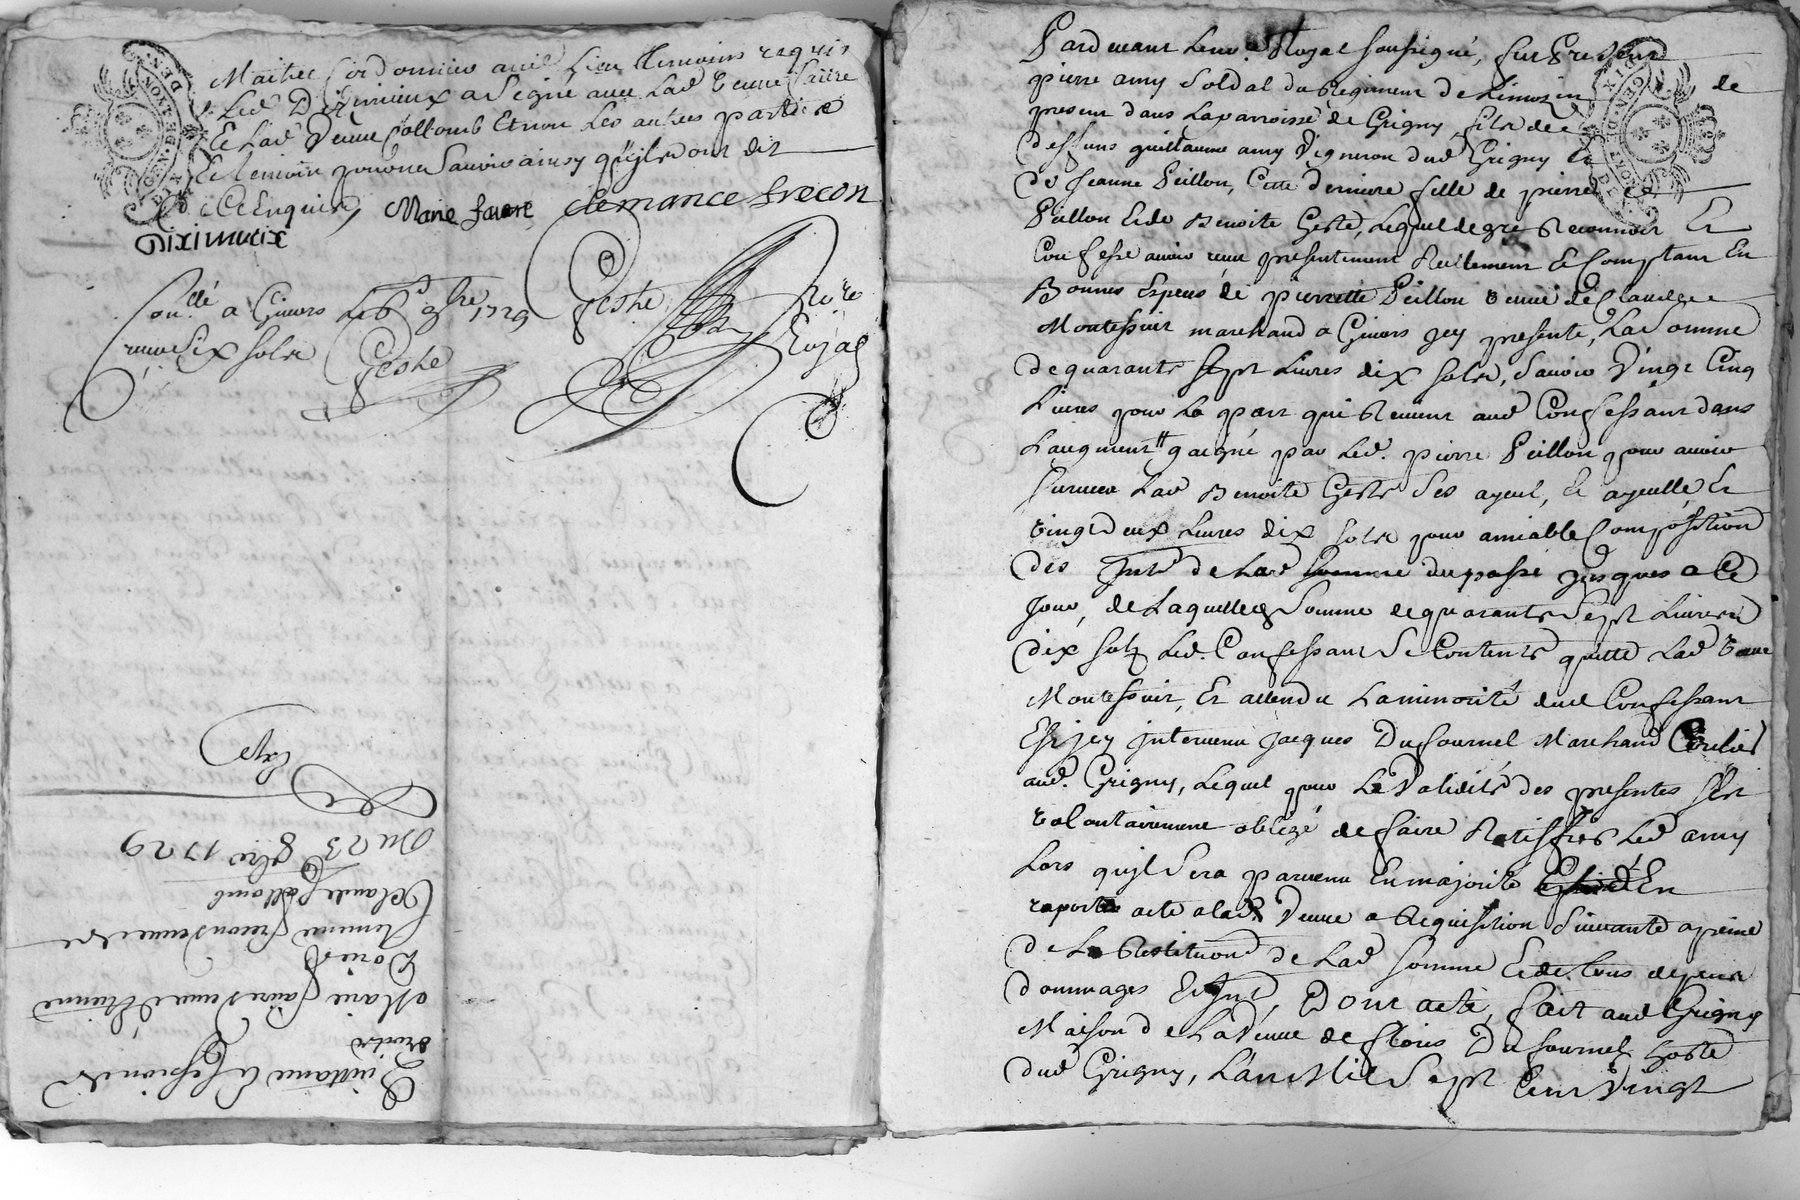 Maitre Cordonnier aud. Lieu temoins requis
Led. Diximieux a Signé avec Lad Veuve faure
Et Lad Veuve Collomb Et non Les autres parties
Le temoin pour ne Sauoir ainsy qu'jls ont dit
de ce Enquis, Marie faure, clemance frecon
Diximieux
Geshe
Nore
Royal
Con.llé a Givors Le 6e 9bre 1729
reçu Six sols Geshe
GENER. DE LYON
Quittance Cession et
droits
Marie faure veuve d'Etienne
Clemence frecon veuve de
Claude Collomb
Du 23 8bre 1729
Exp
Pardevant Le no.re Royal soussigné, fut present
pierre amy soldat du Regiment de Limozin de
present dans La parroisse de Grigny, fils de
deffunt guillaume amy Vigneron dud Grigny Et
de Jeanne Peillon, Cette derniere fille de pierre
Peillon Et de Benoite Geste, Lequel de gré Reconnoit Et
Confesse avoir reçu presentement Reellement et Comptant En
Bonnes Especes de pierrette Peillon veuve de Claude
Montessuit marchand a Givors jcy presente, La Somme
de quarante sept Livres dix sols, Sauoir Vingt Cinq
Livres pour La part qui Revient aud Confessant dans
L'augment gaigné par Led. pierre Peillon pour avoir
survecu Lad Benoite Geste Ses ayeul, Et ayeulle, Et
vingt deux Livres dix sols pour amiable Composition
des Intts de Lad somme du passé jusques a Ce
jour, de Laquelle Somme de quarante Sept Livres
dix sols Led. Confessant Se Contente quitte Lad Veuve
Montessuit, Et attendu La minorité dud Confessant
Est jcy Intervenu jacques Dufournel Marchand
aud. Grigny, Lequel pour La Validité des presentes s'est
volontairement obligé de faire Ratiffier Led amy
Lors qu'jl Sera parvenu En majorité En
raporter acte a lad. Veuve a Requisition Suivante a peine
de La Restitution de Lad somme Et de tous depens
dommages Et Intts, Dont acte, fait aud Grigny
Maison de La Veuve de fleuris Dufournel hoste
dud Grigny, L'an Mil Sept Cent Vingt